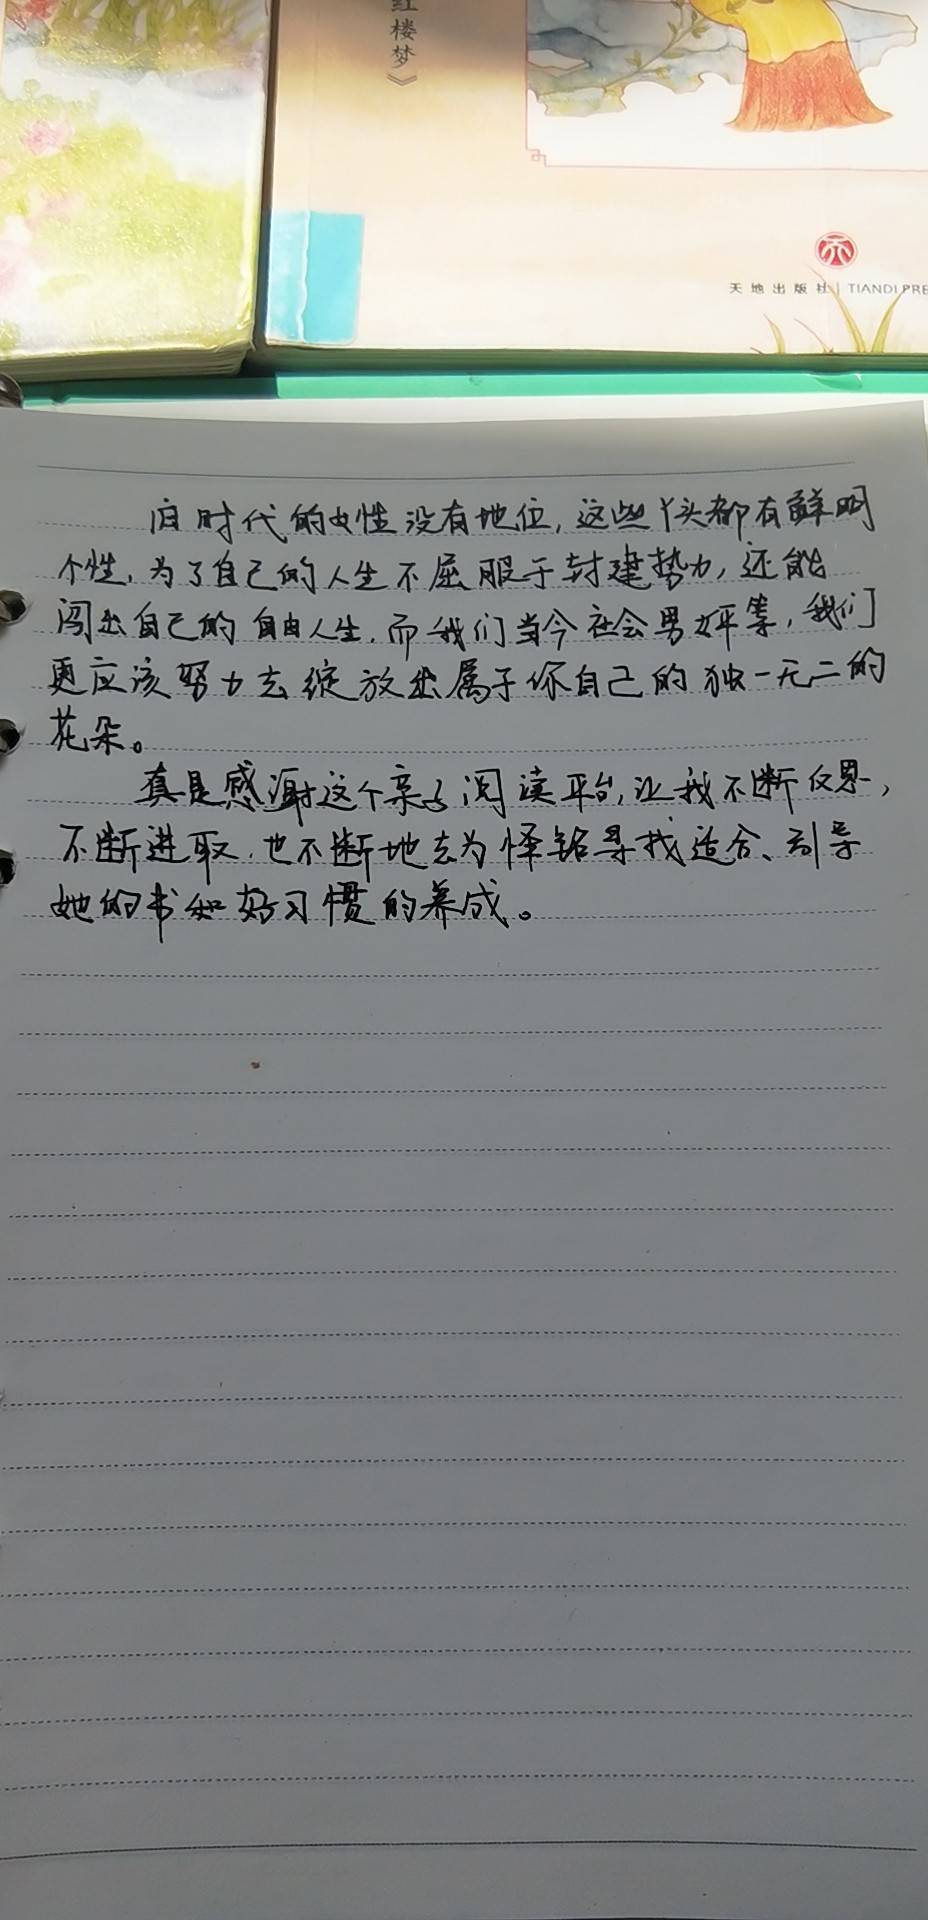 红楼梦》
天地出版社 TIANDI PRE
旧时代的女性没有地位,这些丫头都有鲜明
个性,为了自己的人生不屈服于封建势力,还能
闯出自己的自由人生,而我们当今社会男女平等,我们
更应该努力去绽放出属于你自己的独一无二的
花朵。
真是感谢这个亲子阅读平台,让我不断反思,
不断进取,也不断地去为怿铭寻找适合、引导
她的书和好习惯的养成。